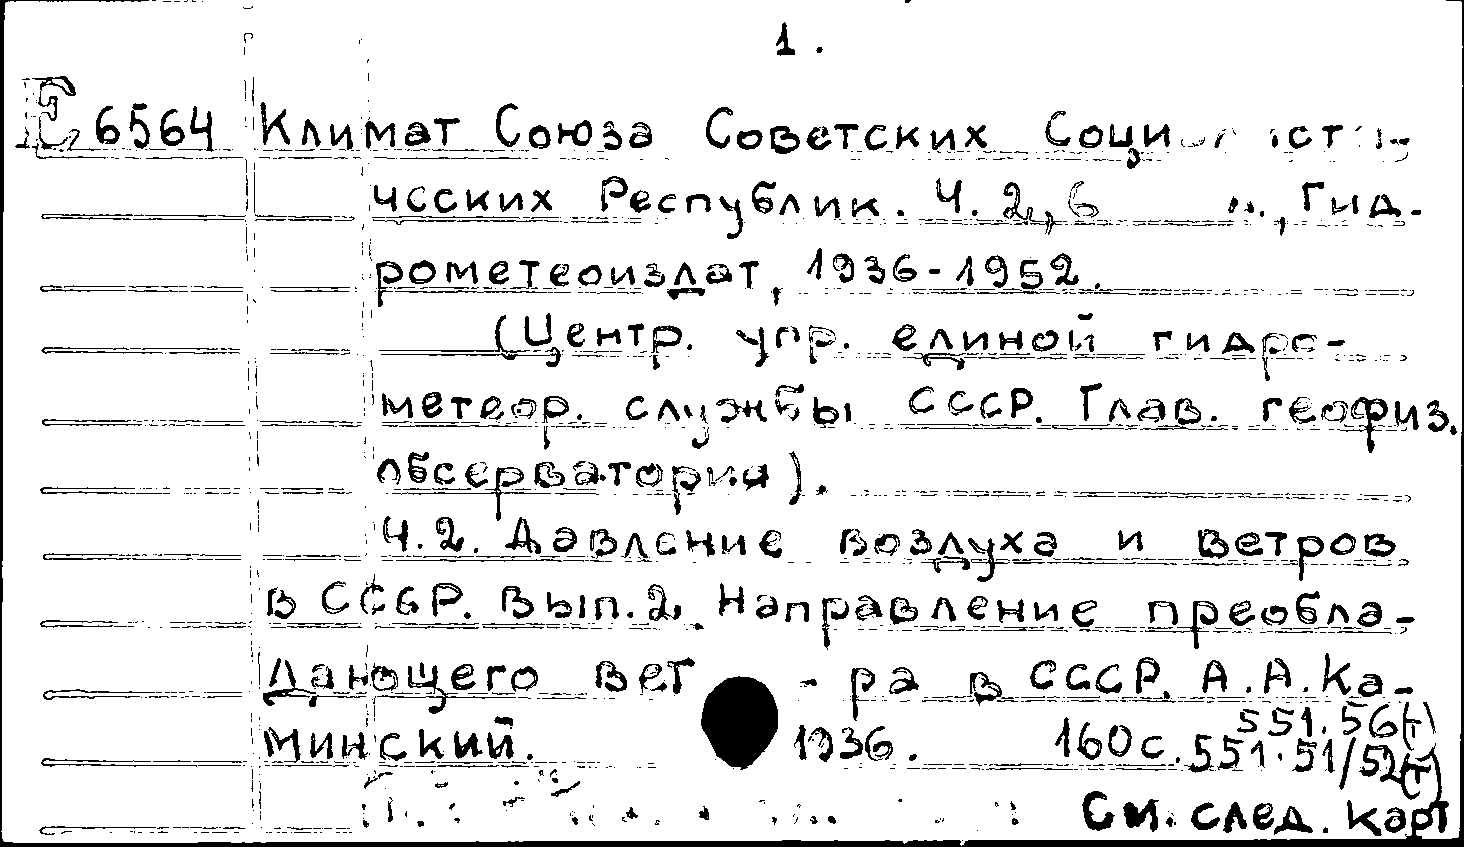 1.
Е 6564 Климат Союза Советских Социалистиче-
ческих Республик. Ч. 2, б м., Гид-
рометеоиздат, 1936-1952.
(Центр. упр. единой гидро-
метеор. службы СССР. Глав. геофиз.
обсерватория).
Ч.2. Давление воздуха и ветров
в СССР. Вып.2. Направление преобла-
дающего вет - ра в СССР. А.А.Ка-
минский. 1936. 160с. 551.56(т)
551.51/52(т)
См. след. карт